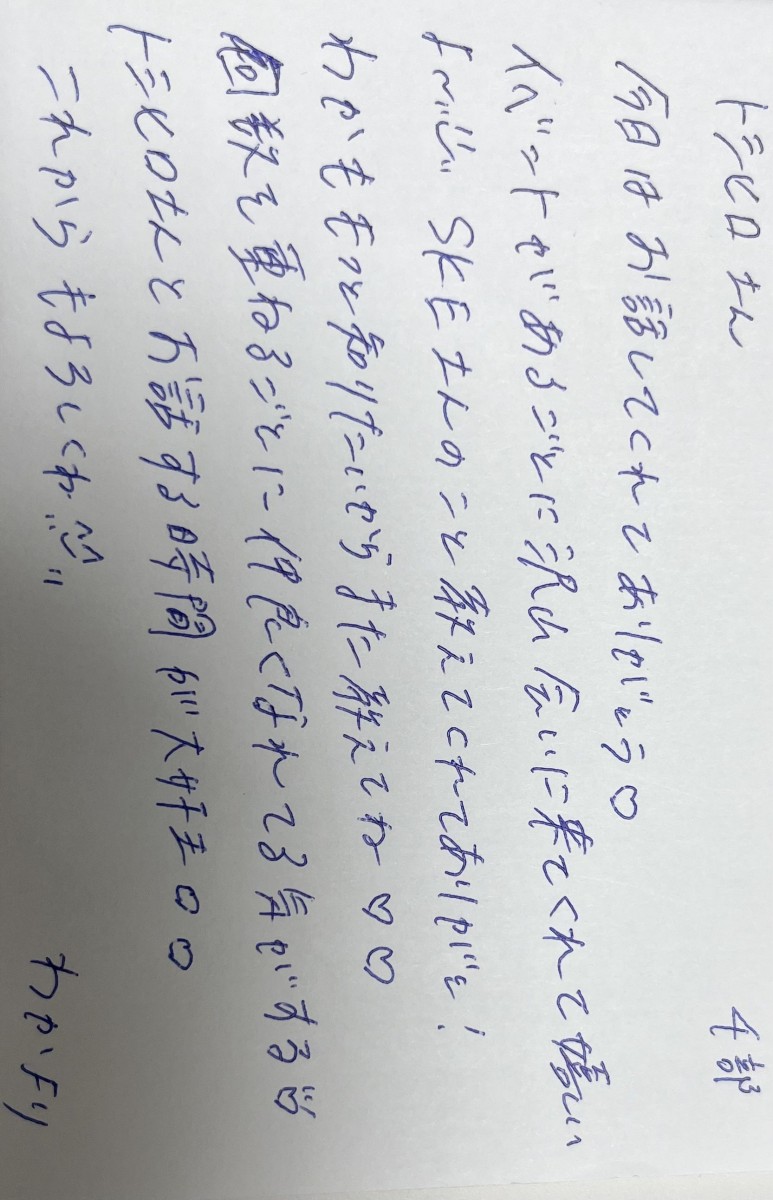 トミヒロさん 4部
今日はお話してくれてありがとう♡
イベントがあるごとに沢山会いに来てくれて嬉しい
よ〜!! SKEさんのこと教えてくれてありがと!
わかももっと知りたいからまた教えてね♡♡
回数を重ねるごとに仲良くなれてる気がする♡
トミヒロさんとお話する時間が大好き♡♡
これからもよろしくね
わかより